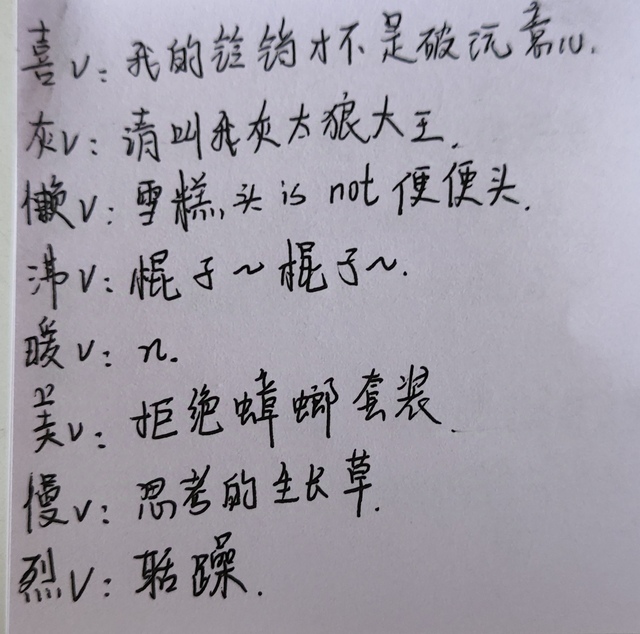 喜v：我的铃铛才不是破玩意ル.
灰v：请叫我灰太狼大王.
懒v：雪糕头is not便便头.
沸v：棍子～棍子～.
暖v：n.
美v：拒绝蟑螂套装.
慢v：思考的生长草.
烈v：聒躁.